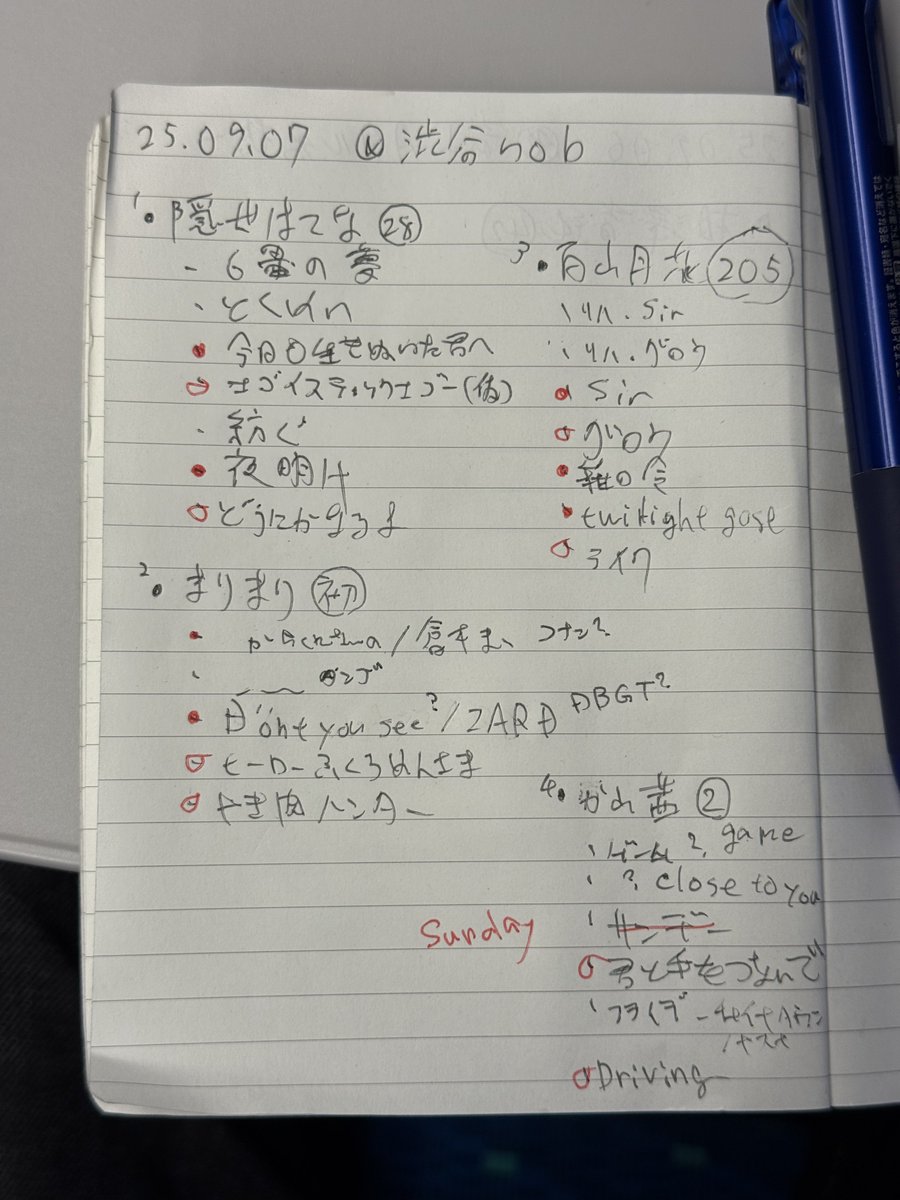 25.09.07 @渋谷nob
1. 隠世はてな 28
- 6畳の夢
・とくめい
今日の生きぬいた君へ
エゴイスティックエゴー(仮)
・紡ぐ
夜明け
どうにかなるよ
2. まりまり 初
/倉木まい コナン?
Don't you see?/ZARD DBGT?
ヒーローふくろめんさま
やき肉ハンター
3. 百山月花 205
・リハ.Sir
・リハ.グロウ
Sir
グロウ
雑の令
twilight gose
ライク
4. 茜 2
・ゲーム?. game
・?. close to you
・サンデー
Sunday
君と手をつないで
・フライデー
Driving